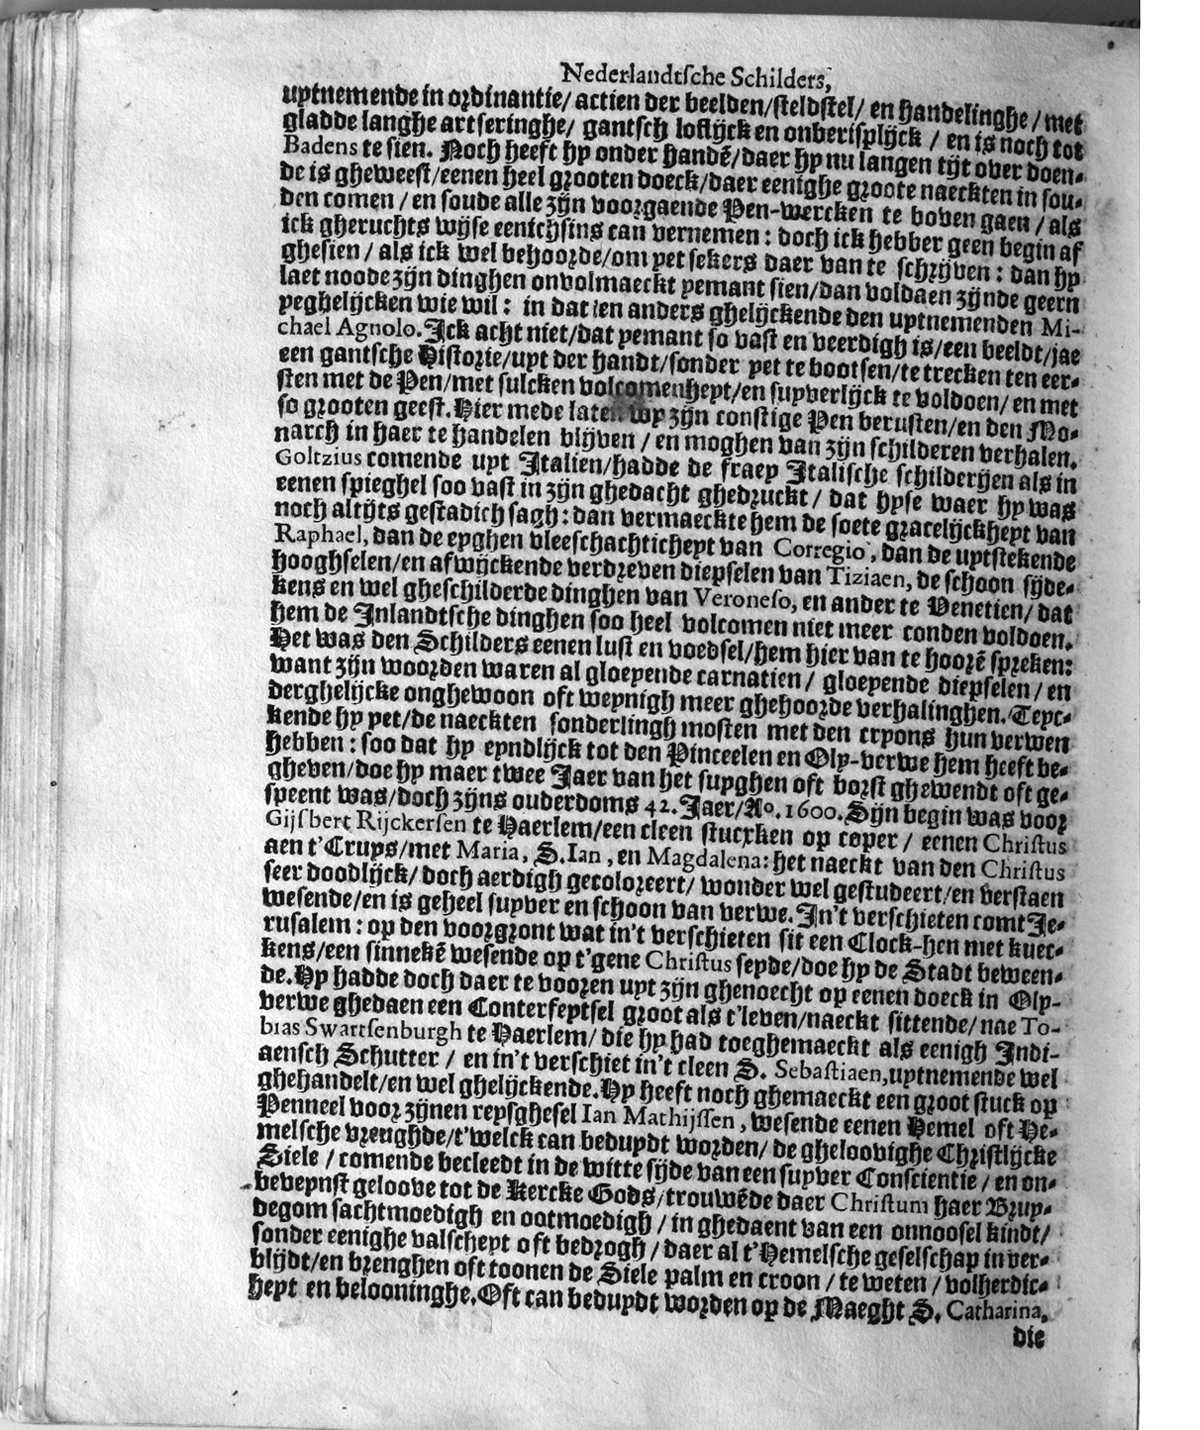 Nederlandtſche Schilders,
uytnemende in ordinantie/ actien der beelden/ſteldſtel/ en handelinghe/ met
gladde langhe artſeringhe/ gantſch loflijck en onberiſplijck / en is noch tot
Badens te ſien. Noch heeft hy onder handẽ/daer hy nu langen tijt over doen-
de is gheweeſt/eenen heel grooten doeck/daer eenighe groote naeckten in ſou-
den comen / en ſoude alle zijn voorgaende Pen-wercken te boven gaen / als
ick gheruchts wijſe eenichſins can vernemen: doch ick hebber geen begin af
gheſien / als ick wel behoorde/om yet ſekers daer van te ſchrijven: dan hy
laet noode zijn dinghen onvolmaeckt yemant ſien/dan voldaen zijnde geern
yeghelijcken wie wil: in dat ten anders ghelijckende den uytnemenden Mi-
chael Agnolo. Ick acht niet/dat yemant ſo vaſt en veerdigh is/een beeldt/jae
een gantſche Hiſtorie/uyt der handt/ſonder yet te bootſen/te trecken ten eer-
ſten met de Pen/met ſulcken volcomenheyt/en ſuyverlijck te voldoen/ en met
ſo grooten geeſt. Hier mede laten wy zijn conſtige Pen beruſten/en den Mo-
narch in haer te handelen blijven / en moghen van zijn ſchilderen verhalen.
Goltzius comende uyt Italien/hadde de fraey Italiſche ſchilderijen als in
eenen ſpieghel ſoo vaſt in zijn ghedacht ghedruckt / dat hyſe waer hy was
noch altijts geſtadich ſagh: dan vermaeckte hem de ſoete gracelijckheyt van
Raphael, dan de eyghen vleeſchachticheyt van Corregio, dan de uytſtekende
hooghſelen/en afwijckende verdreven diepſelen van Tiziaen, de ſchoon ſijde-
kens en wel gheſchilderde dinghen van Veroneſo, en ander te Venetien/ dat
hem de Inlandtſche dinghen ſoo heel volcomen niet meer conden voldoen.
Het was den Schilders eenen luſt en voedſel/hem hier van te hoorẽ ſpreken:
want zijn woorden waren al gloeyende carnatien / gloeyende diepſelen / en
derghelijcke onghewoon oft weynigh meer ghehoorde verhalinghen. Teyc-
kende hy yet/de naeckten ſonderlingh moſten met den cryons hun verwen
hebben: ſoo dat hy eyndlijck tot den Pinceelen en Oly-verwe hem heeft be-
gheven/doe hy maer twee Jaer van het ſuyghen oft borſt ghewendt oft ge-
ſpeent was/doch zijns ouderdoms 42. Jaer/Aº. 1600. Sijn begin was voor
Gijſbert Rijckerſen te Haerlem/een cleen ſtucxken op coper / eenen Chriſtus
aen t'Cruys/met Maria, S. Ian, en Magdalena: het naeckt van den Chriſtus
ſeer doodlijck/ doch aerdigh gecoloreert/ wonder wel geſtudeert/en verſtaen
weſende/en is geheel ſuyver en ſchoon van verwe. In't verſchieten comt Je-
ruſalem: op den voorgront wat in't verſchieten ſit een Clock-hen met kuec-
kens/een ſinnekẽ weſende op t'gene Chriſtus ſeyde/doe hy de Stadt beween-
de. Hy hadde doch daer te vooren uyt zijn ghenoecht op eenen doeck in Oly-
verwe ghedaen een Conterfeytſel groot als t'leven/naeckt ſittende/ nae To-
bias Swartſenburgh te Haerlem/ die hy had toeghemaeckt als eenigh Indi-
aenſch Schutter / en in't verſchiet in't cleen S. Sebaſtiaen,uytnemende wel
ghehandelt/en wel ghelijckende. Hy heeft noch ghemaeckt een groot ſtuck op
Penneel voor zijnen reyſgheſel Ian Mathijſſen, weſende eenen Hemel oft He-
melſche vreughde/t'welck can beduydt worden/ de gheloovighe Chriſtlijcke
Siele / comende becleedt in de witte ſijde van een ſuyver Conſcientie / en on-
beveynſt geloove tot de Kercke Gods/trouwẽde daer Chriſtum haer Bruy-
degom ſachtmoedigh en ootmoedigh / in ghedaent van een onnooſel kindt/
ſonder eenighe valſcheyt oft bedrogh / daer al t'Hemelſche geſelſchap in ver-
blijdt/en brenghen oft toonen de Siele palm en croon / te weten / volherdic-
heyt en belooninghe. Oft can beduydt worden op de Maeght S. Catharina,
die